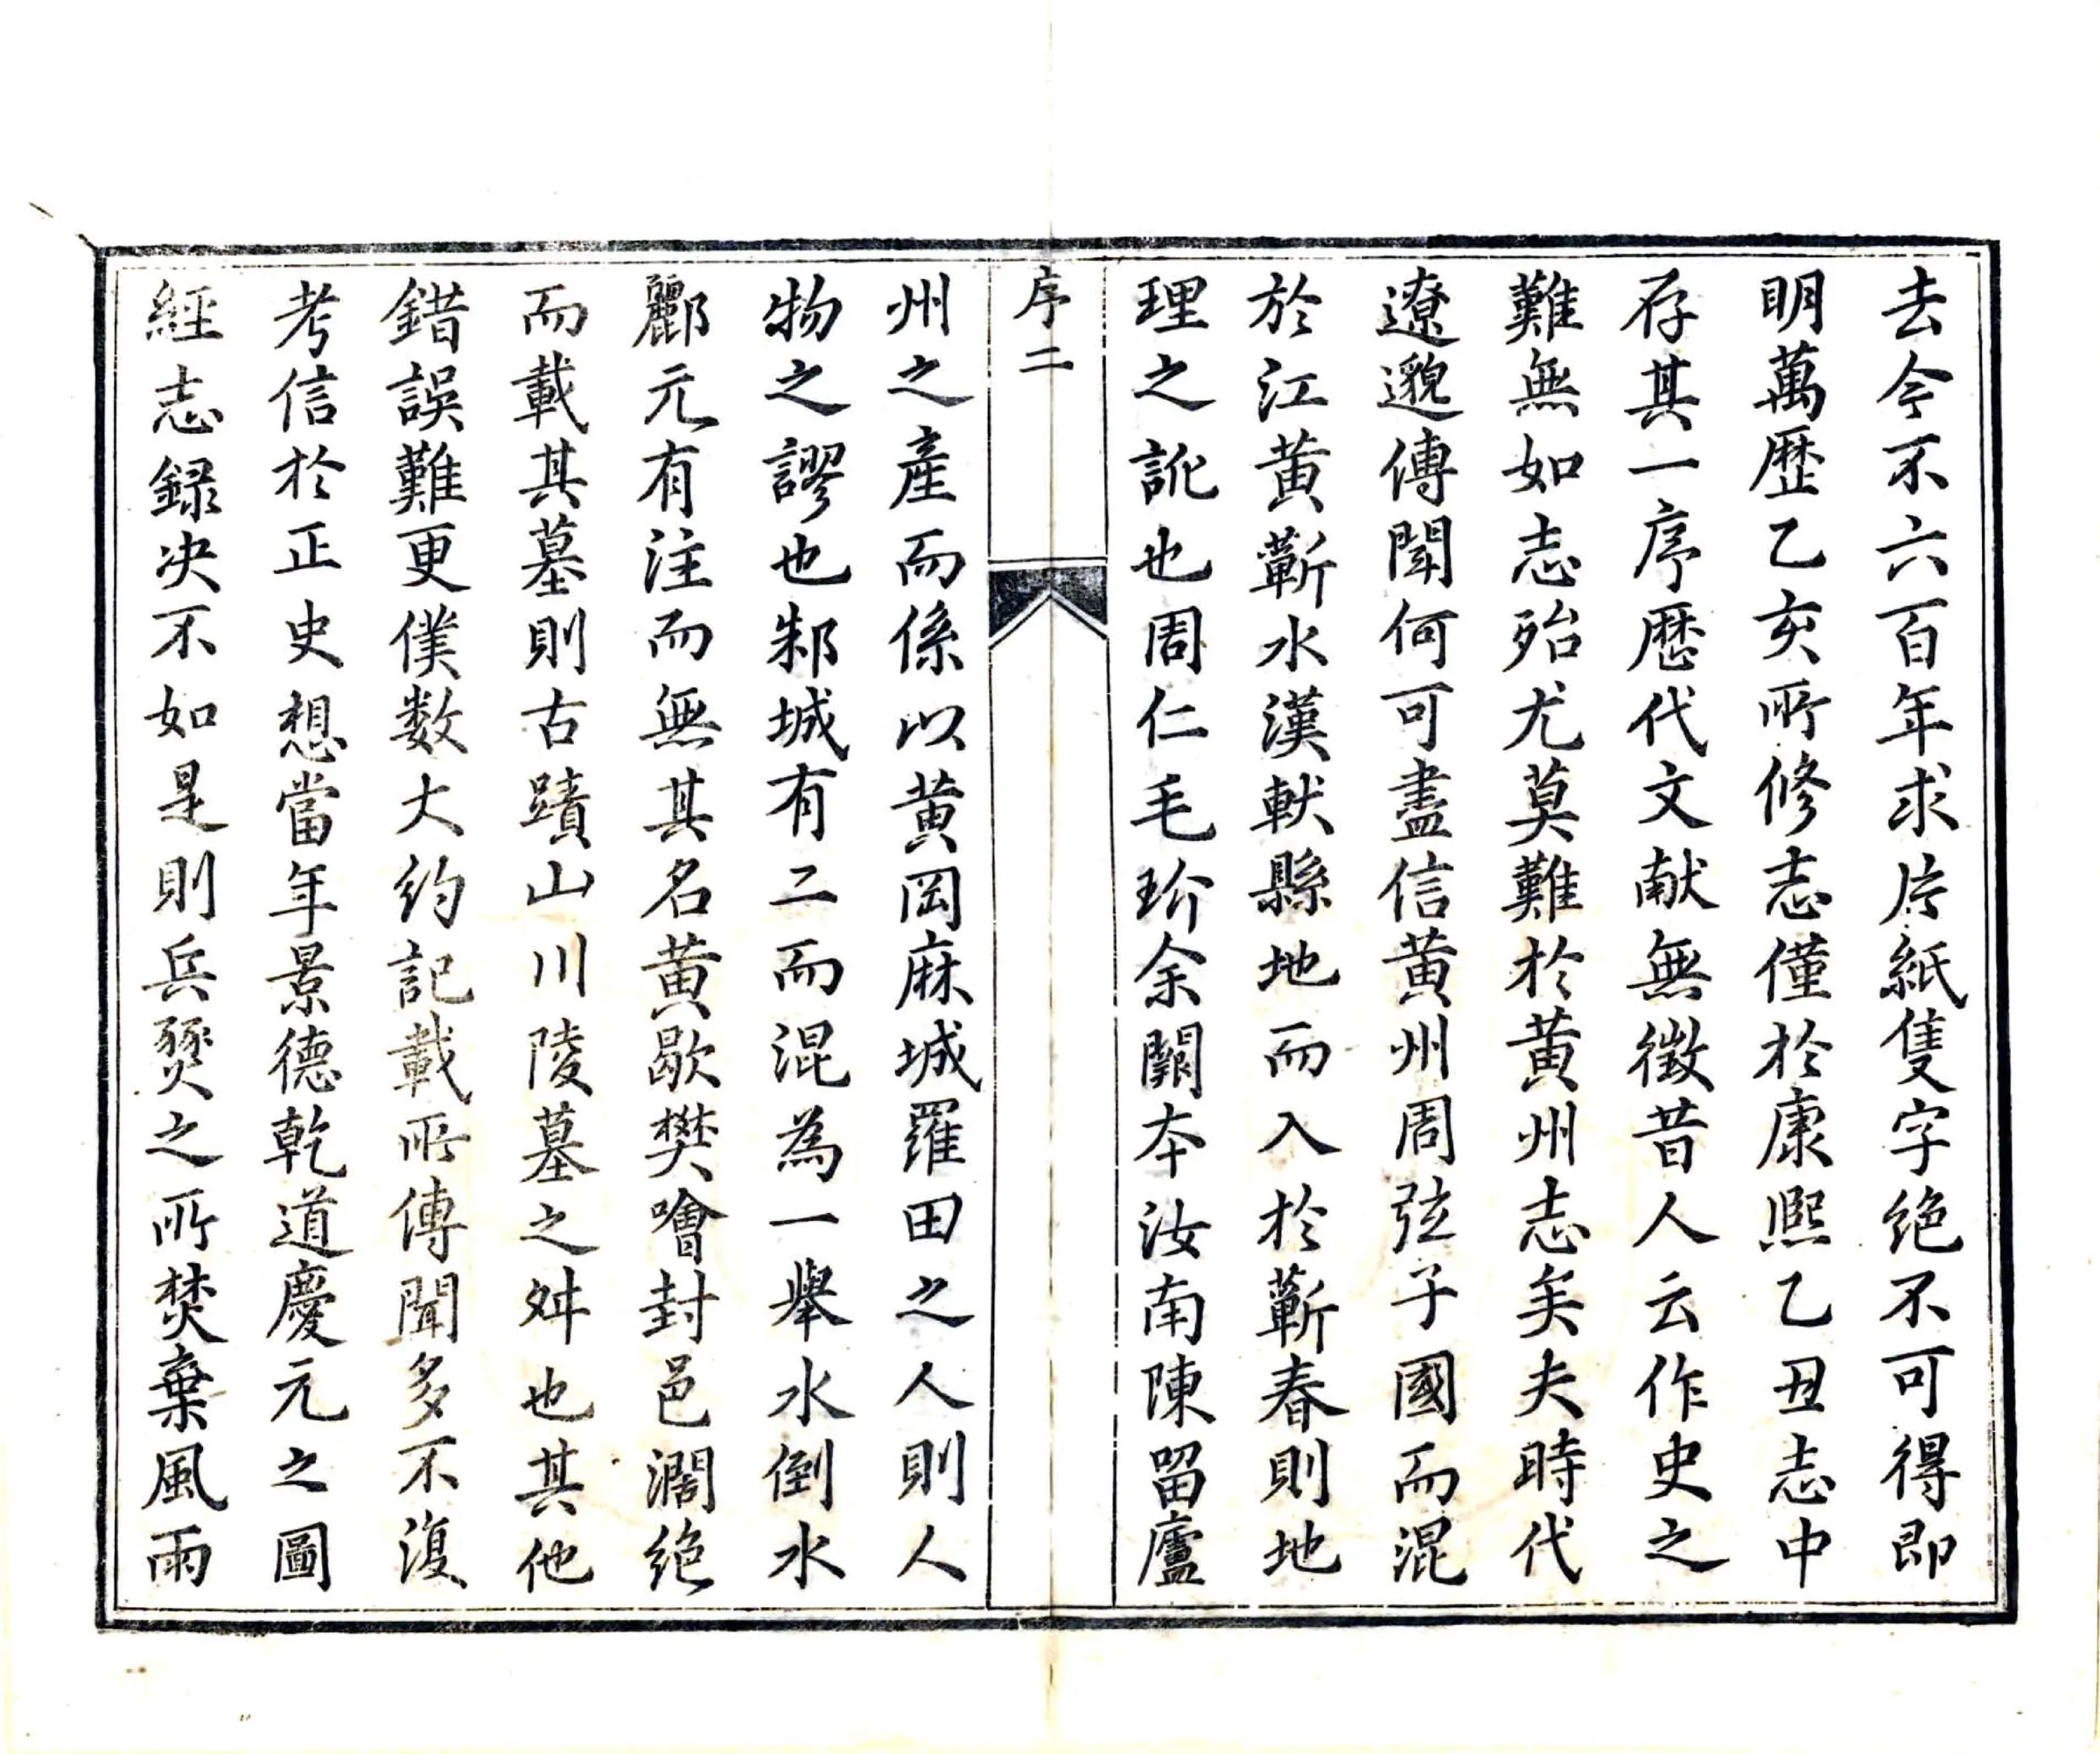 去今不六百年求片紙隻字绝不可得即
明萬歷乙亥所修志僅於康熙乙丑志中
存其一序歴代文献無徵昔人云作史之
難無如志殆尤莫難於黄州志矣夫時代
遼邈傳聞何可盡信黄州周弦子國而混
於江黄蘄水漢軑縣地而入於蘄春則地
理之訛也周仁毛玠余闕本汝南陳留廬
序二
州之產而係以黄岡麻城羅田之人則人
物之謬也邾城有二而混為一舉水倒水
酈元有注而無其名黄歇樊噲封邑濶绝
而載其墓則古蹟山川陵墓之舛也其他
錯誤難更僕数大約記載所傳聞多不復
考信於正史想當年景德乾道慶元之圖
經志録决不如是則兵燹之所焚棄風雨